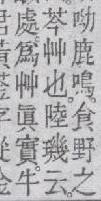 呦鹿鳴。食野之
芩艸也。陸璣云。
處。爲艸眞實。牛